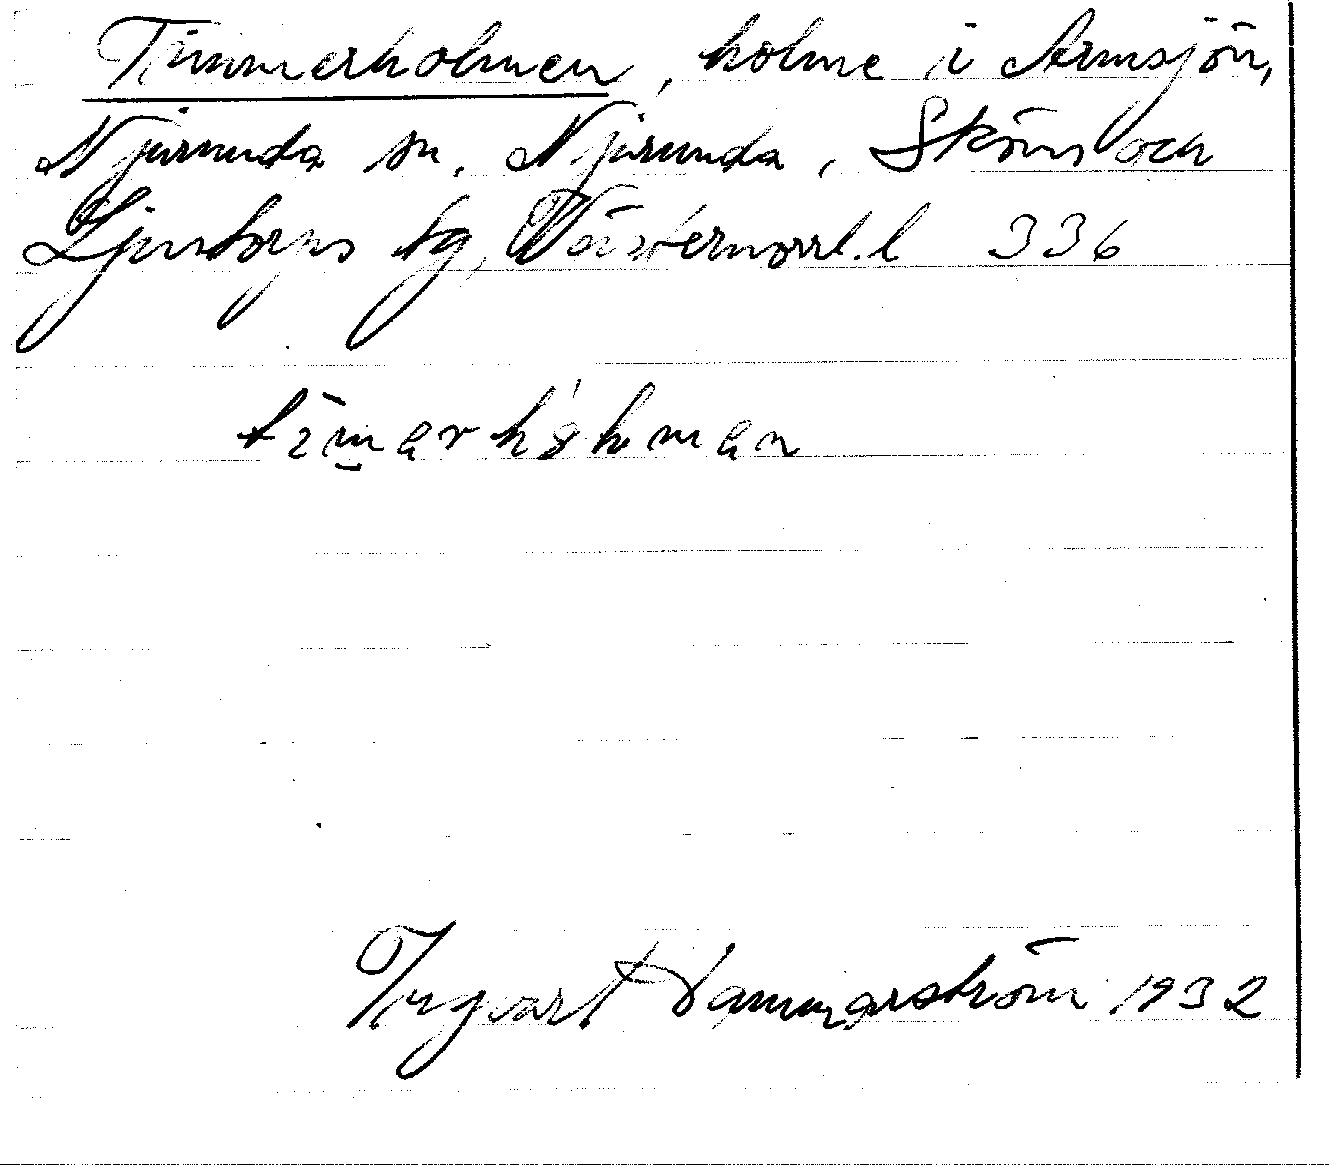 Timmerholmen, holme i Armsjön,
Njurunda sn, Njurunda, Sköns och
Ljustorps tg, Västernorrl. l 336
Yngvart Dammarström 1932